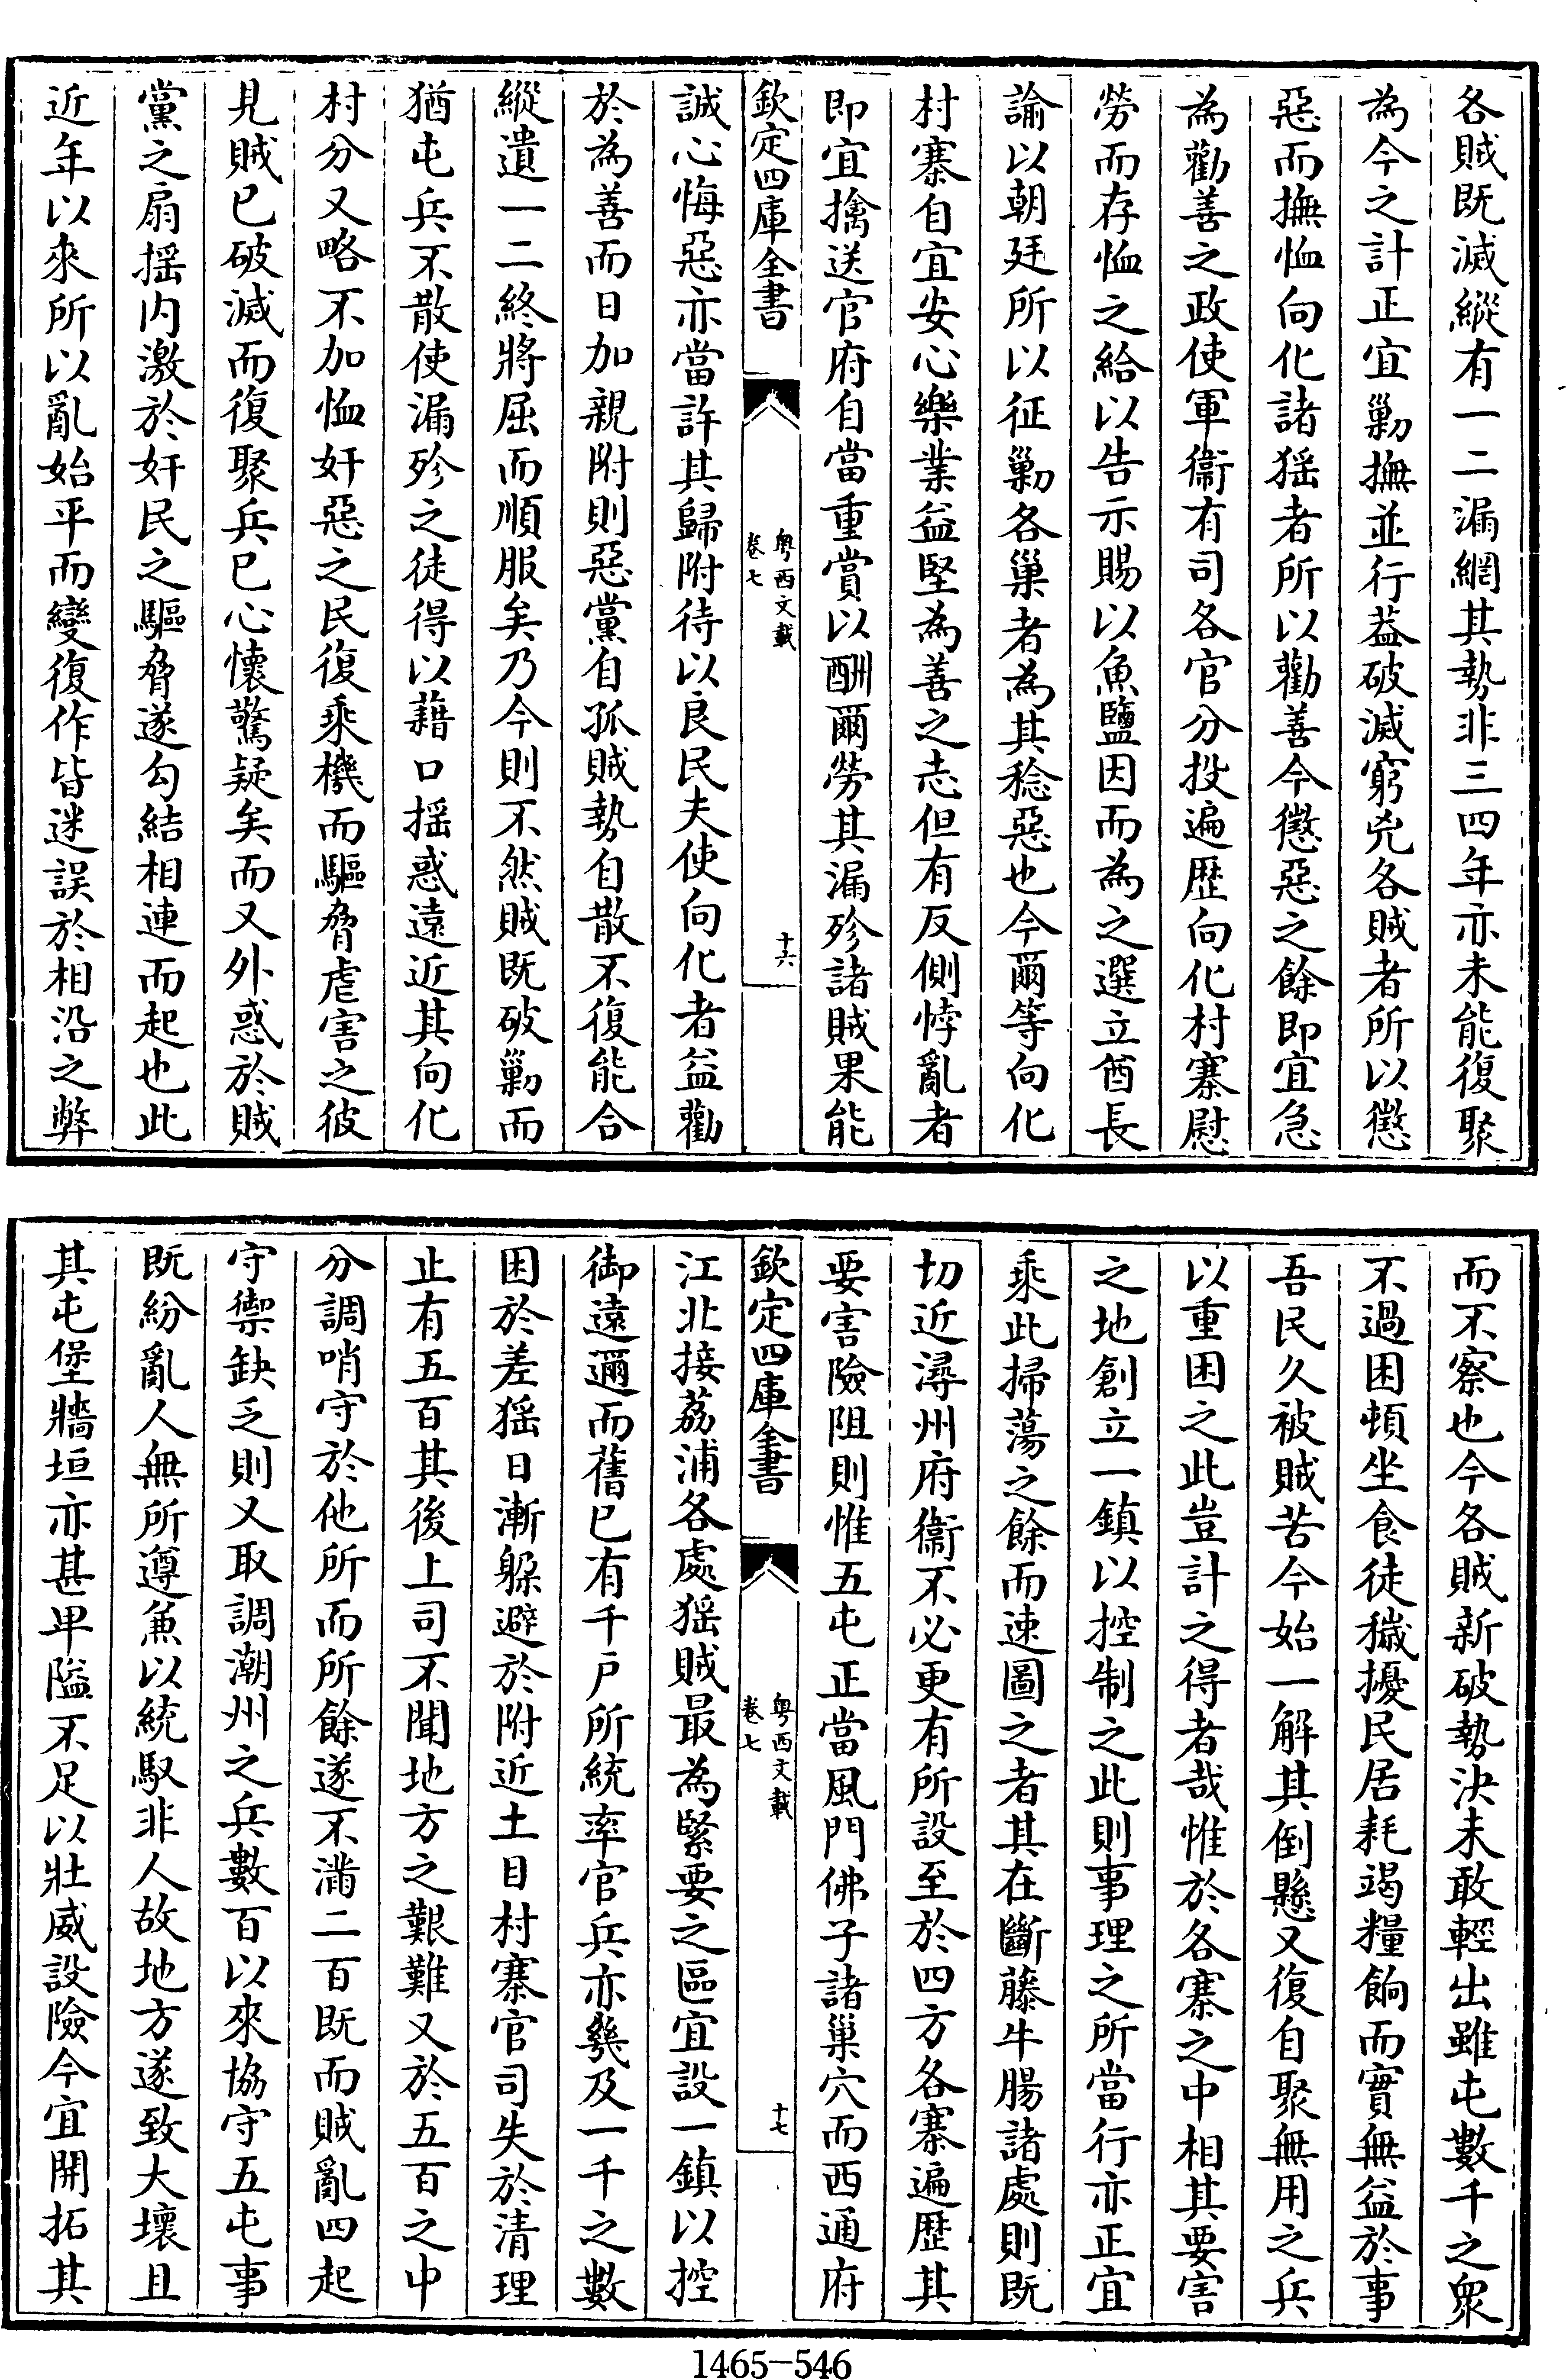 各賊既滅縱有一二漏網其勢非三四年亦未能復聚
為今之計正宜剿撫並行葢破滅窮兇各賊者所以懲
惡而撫恤向化諸猺者所以勸善今懲惡之餘即宜急
為勸善之政使軍衞有司各官分投遍歴向化村寨慰
勞而存恤之給以告示賜以魚鹽因而為之選立酋長
諭以朝廷所以征剿各巢者為其稔惡也今爾等向化
村寨自宜安心樂業益堅為善之志但有反側悖亂者
即宜擒送官府自當重賞以酬爾勞其漏殄諸賊果能
欽定四庫全書
粤西文載
卷七
十六
誠心悔惡亦當許其歸附待以良民夫使向化者益勸
於為善而日加親附則惡黨自孤賊勢自散不復能合
縱遺一二終將屈而順服矣乃今則不然賊既破剿而
猶屯兵不散使漏殄之徒得以藉口揺惑遠近其向化
村分又略不加恤奸惡之民復乘機而驅脅虐害之彼
見賊已破滅而復聚兵已心懷驚疑矣而又外惑於賊
黨之扇揺内激於奸民之驅脅遂勾結相連而起也此
近年以來所以亂始平而變復作皆迷誤於相沿之弊
而不察也今各賊新破勢決未敢輕出雖屯數千之衆
不過困頓坐食徒穢擾民居耗竭糧餉而實無益於事
吾民久被賊苦今始一解其倒懸又復自聚無用之兵
以重困之此豈計之得者哉惟於各寨之中相其要害
之地創立一鎮以控制之此則事理之所當行亦正宜
乘此掃蕩之餘而速圖之者其在斷藤牛腸諸處則既
切近潯州府衞不必更有所設至於四方各寨遍歴其
要害險阻則惟五屯正當風門佛子諸巢穴而西通府
欽定四庫全書
粤西文載
卷七
十七
江北接荔浦各處猺賊最為緊要之區宜設一鎮以控
御遠邇而舊已有千戸所統率官兵亦幾及一千之數
困於差猺日漸躱避於附近土目村寨官司失於清理
止有五百其後上司不聞地方之艱難又於五百之中
分調哨守於他所而所餘遂不滿二百既而賊亂四起
守禦缺乏則又取調潮州之兵數百以來協守五屯事
既紛亂人無所遵兼以統馭非人故地方遂致大壞且
其屯堡牆垣亦甚卑隘不足以壯威設險今宜開拓其
1465-546